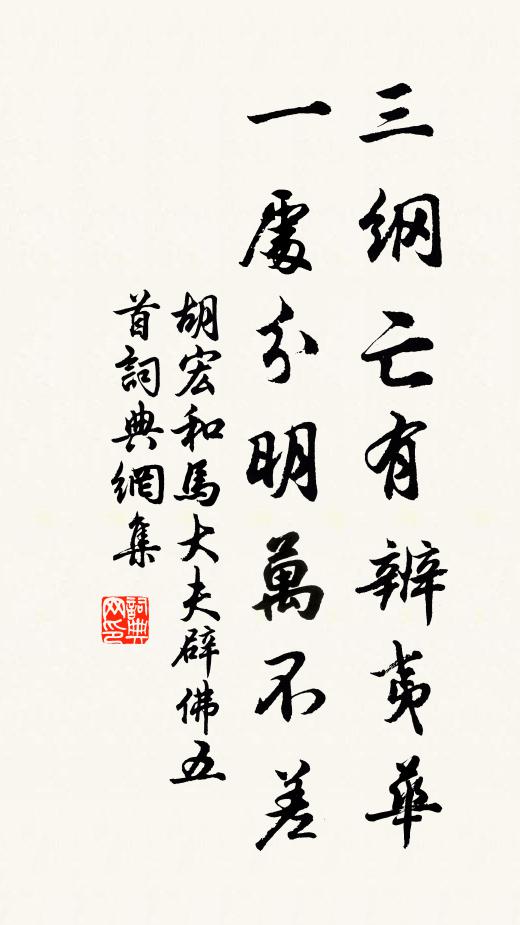 三綱亡有辨夷華
一處分明萬不差
胡宏和馬大夫辟佛五
首詞典網集
詞典
网印